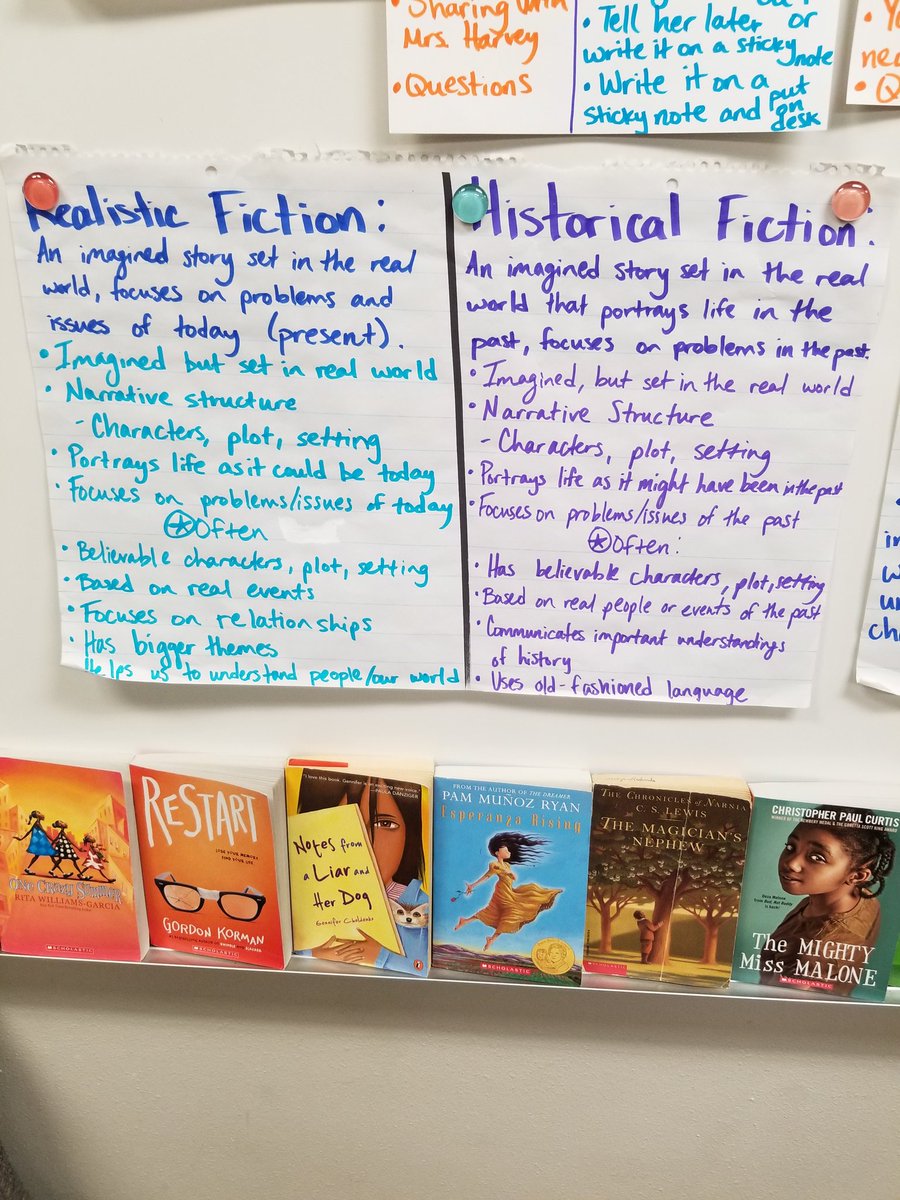 Sharing with
Mrs. Harvey
• Questions
• Tell her later or
write it on a sticky note
• Write it on a
sticky note and put on desk
Realistic Fiction:
An imagined story set in the real
world, focuses on problems and
issues of today (present).
• Imagined but set in real world
• Narrative structure
- Characters, plot, setting
• Portrays life as it could be today
• Focuses on problems/issues of today
Often
• Believable characters, plot, setting
• Based on real events
• Focuses on relationships
• Has bigger themes
Helps us to understand people/our world
Historical Fiction:
An imagined story set in the real
world that portrays life in the
past, focuses on problems in the past.
• Imagined, but set in the real world
• Narrative Structure
- Characters, plot, setting
• Portrays life as it might have been in the past
• Focuses on problems/issues of the past
Often:
• Has believable characters, plot, setting
• Based on real people or events of the past
• Communicates important understandings
of history
• Uses old-fashioned language
One Crazy Summer
RITA WILLIAMS-GARCIA
SCHOLASTIC
ReSTART
LOSE YOUR MEMORY
FIND YOUR LIFE
GORDON KORMAN
SCHOLASTIC
"I love this book. Gennifer is an exciting new voice."
—PAULA DANZIGER
Notes from
a Liar and
Her Dog
Gennifer Choldenko
FROM THE AUTHOR OF THE DREAMER
PAM MUÑOZ RYAN
Esperanza Rising
SCHOLASTIC
THE CHRONICLES OF NARNIA
C. S. LEWIS
THE MAGICIAN'S
NEPHEW
SCHOLASTIC
CHRISTOPHER PAUL CURTIS
WINNER OF THE NEWBERY MEDAL & THE CORETTA SCOTT KING AWARD
Deza Malone
from Bud, Not Buddy
is back!
The MIGHTY
Miss MALONE
SCHOLASTIC